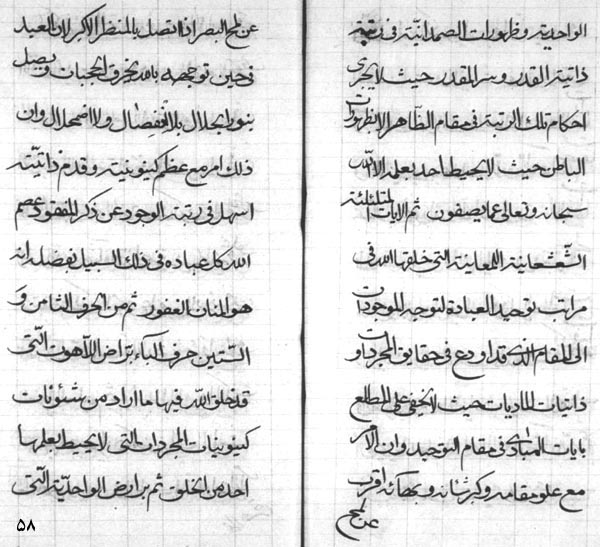 الواحدية و ظهورات الصمدانية فى رتبة
ذاتية القدر و سر المقدر حيث لايجرى
احكام تلك الرتبة فى مقام الظاهر الا ظهورات
الباطن حيث لايحيط احد بعلمه الا الله
سبحانه و تعالى عما يصفون ثم الايات المتلئلئة
الشعشعانية اللمعانية التى خلقها الله فى
مراتب توحيد العبادة لتوجه الموجودات
الى المقام الذى قد اودع فى حقايق المجردات و
ذاتيات الماديات حيث لايخفى على المطلع
بايات المبادى فى مقام التوحيد و ان الامر
مع علو مقامه و كبر شانه و بهائه اقرب
عن لمح
عن لمح البصر اذا اتصل بالمنظر الاكبر لان العبد
فى حين توجهه بالله يخرق الحجبات و يصل
بنور الجلال بلا انفصال و لا اضمحلال و ان
ذلك امر مع عظم كينونيته و قدم ذاتيته
اسهل فى رتبة الوجود عن ذكر المفقود عصم
الله كل عباده فى ذلك السبيل بفضله انه
هو المنان الغفور ثم من الحرف الثامن و
الستين حرف الباء بر اراض اللاهوت التى
قد خلق الله فيها ما اراد من شئونات
كينونيات المجردات التى لايحيط بعلمها
احد من الخلق ثم بر ارض الواحدية التى
۵۸